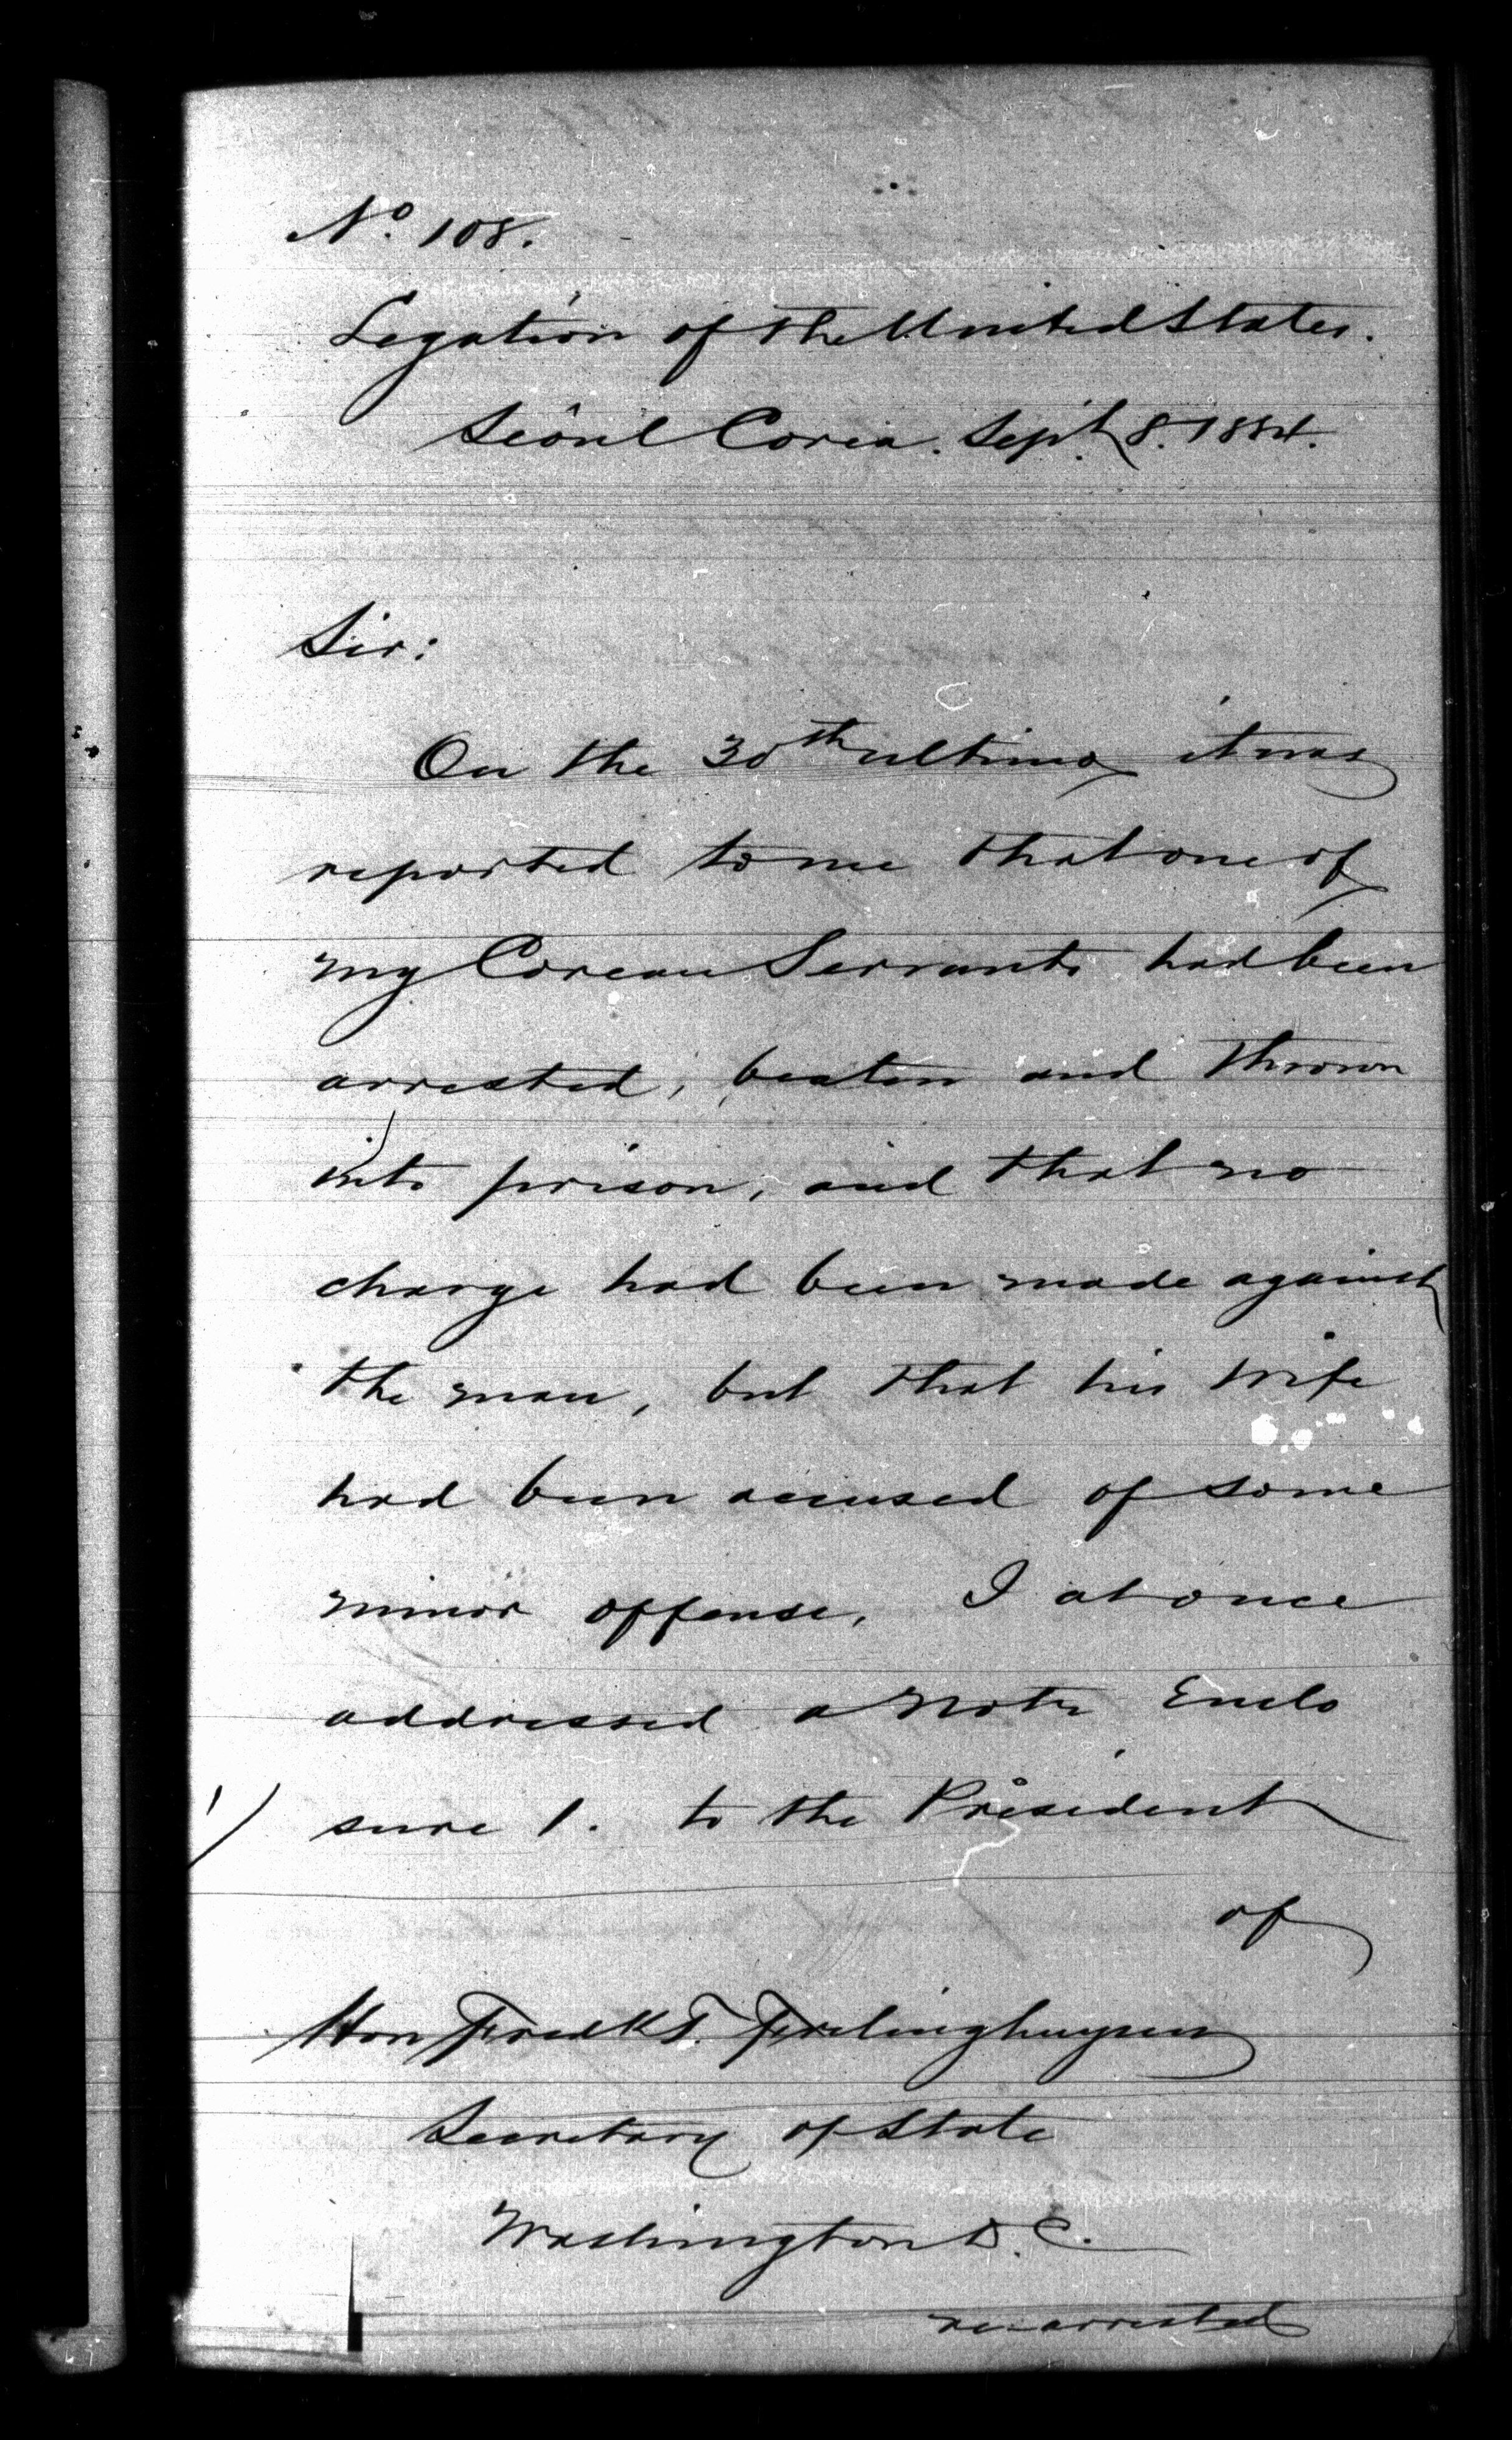 No. 108.
Legation of the United States.
Seôul Corea. Sept. 8. 1884.
Sir:
On the 30th ultimo it was
reported to me that one of
my Corean Servants had been
arrested, beaten and thrown
into prison, and that no
charge had been made against
the man, but that his wife
had been accused of some
minor offense, I at once
addressed a note Enclo
1/ sure 1. to the President
of
Hon Fredk T. Frelinghuysen
Secretary of State
Washington D.C.
re-arrested